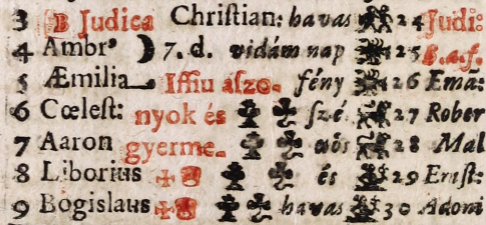 3 B Judica Chriſtian: havas 24 Judi:
4 Ambrꝰ 7. d. vidám nap 25 B.a.ſ.
5 Æmilia Iffiu aſzo- fény 26 Ema:
6 Cœleſt: nyok és ſzé 27 Rober
7 Aaron gyerme- 28 Mal
8 Liborius és 29 Ernſt:
9 Bogislaus havas 30 Adoni